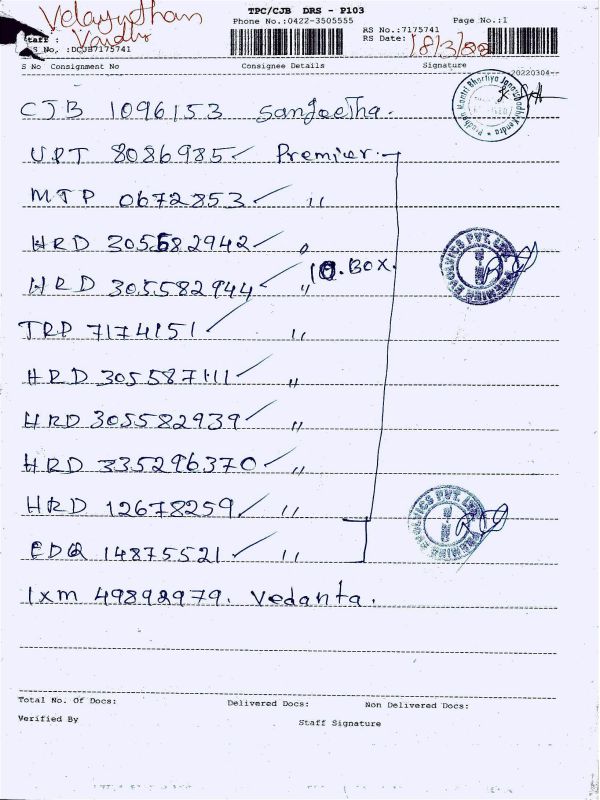 TPC/CJB DRS - P103
Velayudhan
Phone No.:0422-3505555 Page No.:1
Staff :
RS No.:7175741
RS No. :DCJB7175741
RS Date: 18/3/22
S No Consignment No Consignee Details Signature
20220304--
CJB 1096153 Sangeetha.
Pradhan Mantri Bhartiya Janaushadhi Kendra
UPT 8086985 ✓ Premier.
MTP 0672853 ✓ "
HRD 305582942 ✓ "
10. BOX.
HRD 305582944 ✓ "
PREMIER EVOLVICS PVT. LTD
TRP 7174151 ✓ "
HRD 305587111 ✓ "
HRD 305582939 ✓ "
HRD 335296370 ✓ "
HRD 12678259 ✓ "
PREMIER EVOLVICS PVT. LTD
EDQ 14875521 ✓ "
Ixm 49892979. Vedanta.
Total No. Of Docs: Delivered Docs: Non Delivered Docs:
Verified By Staff Signature